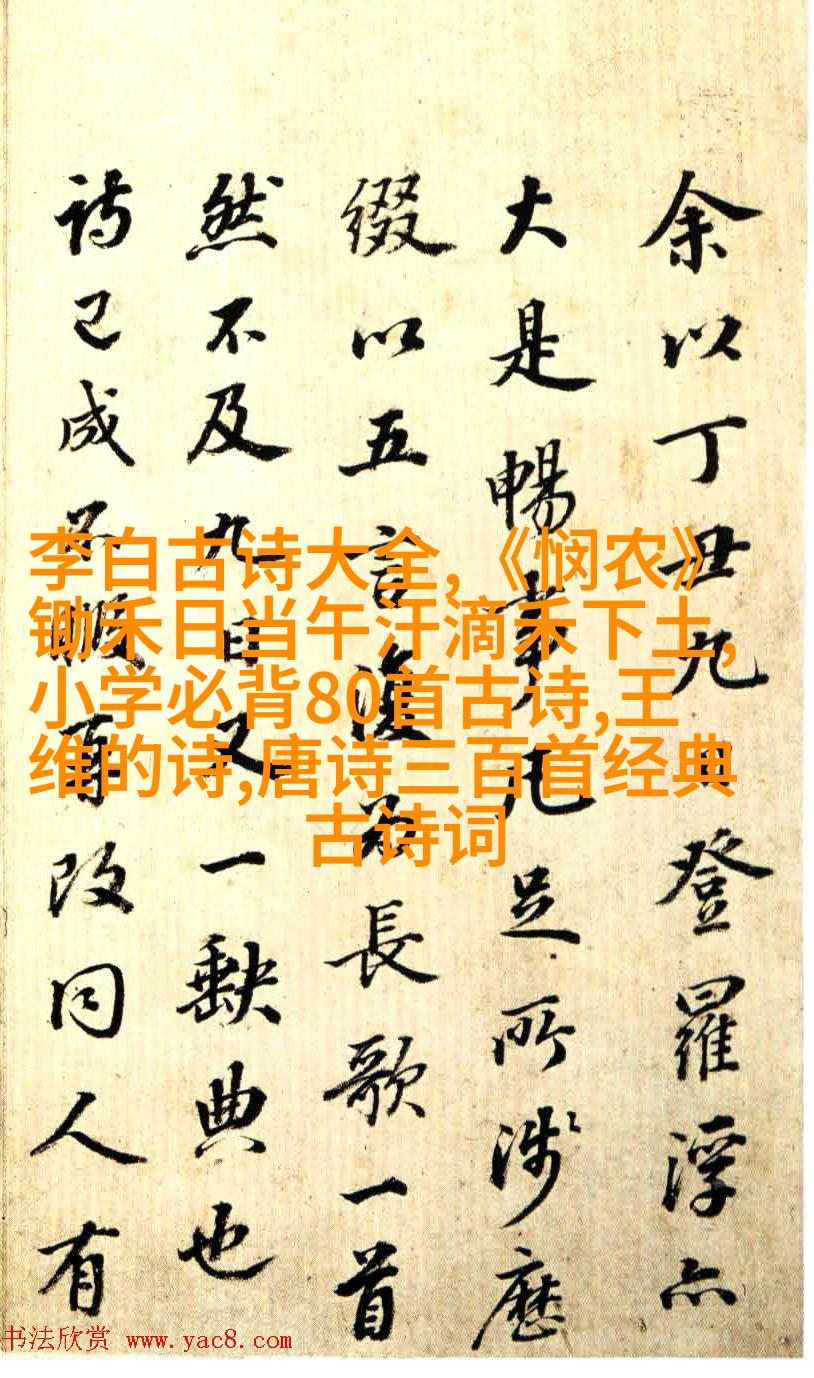 余以丁丑九日登羅浮亦
大是暢事凡足所涉歷
綴以五言復為長歌一首
然不及九日又一缺典也
詩已成不暇百改同人有
李白古诗大全,《悯农》
锄禾日当午汗滴禾下土,
小学必背80首古诗,王
维的诗,唐诗三百首经典
古诗词
书法欣赏 www.yac8.com